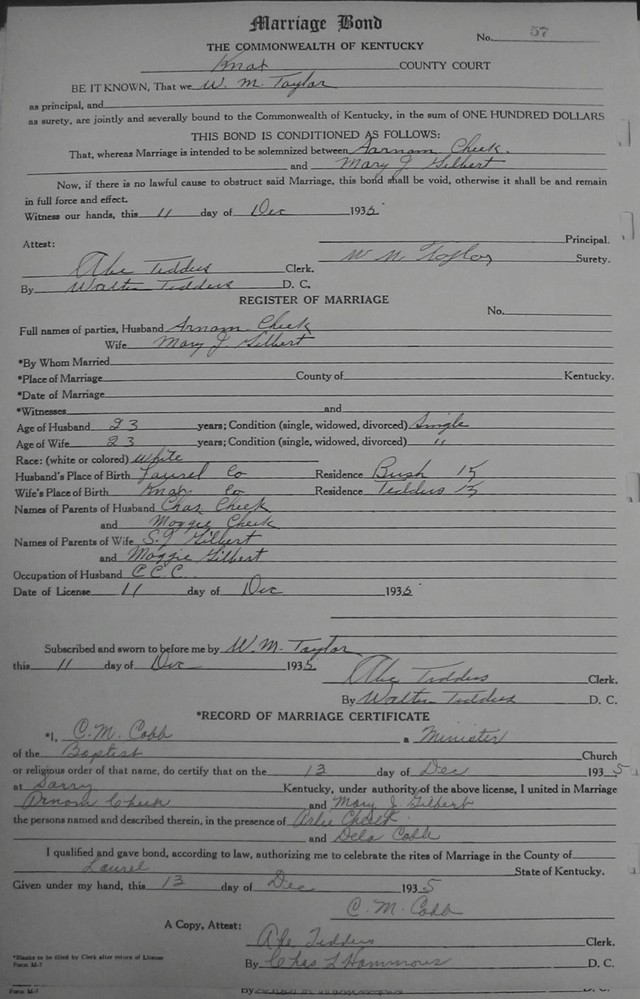 Marriage Bond
No. 57
THE COMMONWEALTH OF KENTUCKY
Knox COUNTY COURT
BE IT KNOWN, That we W. M. Taylor
as principal, and
as surety, are jointly and severally bound to the Commonwealth of Kentucky, in the sum of ONE HUNDRED DOLLARS
THIS BOND IS CONDITIONED AS FOLLOWS:
That, whereas Marriage is intended to be solemnized between Aarnom Cheek.
and Mary J Gilbert
Now, if there is no lawful cause to obstruct said Marriage, this bond shall be void, otherwise it shall be and remain
in full force and effect.
Witness our hands, this 11 day of Dec 1935
Attest: Principal.
Abe Tedders Clerk. W M Taylor Surety.
By Walter Tedders D. C.
REGISTER OF MARRIAGE
No.
Full names of parties, Husband Arnom Cheek
Wife Mary J. Gilbert
*By Whom Married
*Place of Marriage County of Kentucky.
*Date of Marriage
*Witnesses and
Age of Husband 23 years; Condition (single, widowed, divorced) Single
Age of Wife 23 years; Condition (single, widowed, divorced) "
Race: (white or colored) White
Husband's Place of Birth Laurel Co Residence Bush Ky
Wife's Place of Birth Knox Co Residence Tedders Ky
Names of Parents of Husband Chas Cheek
and Maggie Cheek
Names of Parents of Wife S. J Gilbert
and Maggie Gilbert
Occupation of Husband C C C.
Date of License 11 day of Dec 1935
Subscribed and sworn to before me by W. M. Taylor
this 11 day of Dec 1935
Abe Tedders Clerk.
By Walter Tedders D. C.
*RECORD OF MARRIAGE CERTIFICATE
*I, C. M. Cobb a Minister
of the Baptist Church
or religious order of that name, do certify that on the 13 day of Dec 1935
at Kentucky, under authority of the above license, I united in Marriage
Arnom Cheek and Mary J Gilbert
the persons named and described therein, in the presence of Arlie Cheek
and Dela Cobb
I qualified and gave bond, according to law, authorizing me to celebrate the rites of Marriage in the County of
Laurel State of Kentucky.
Given under my hand, this 13 day of Dec 1935
C. M. Cobb
A Copy, Attest:
Abe Tedders Clerk.
*Blanks to be filled by Clerk after return of License
Form M-7 By Chas L Hammons D. C.
Form M-7 By D. C.